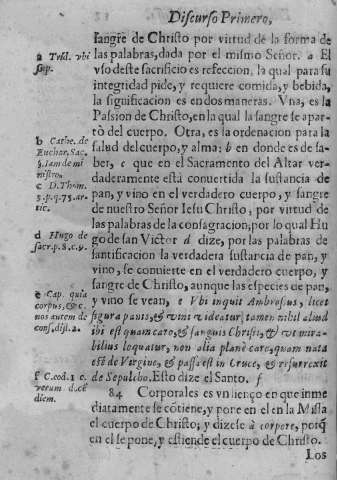 Discurso Primero,
sangre de Christo por virtud de la forma de
las palabras, dada por el mismo Señor. a El
vso deste sacrificio es refeccion, la qual para su
integridad pide, y requiere comida, y bebida,
la significacion es en dos maneras. Vna, es la
Passion de Christo, en la qual la sangre se apar-
tò del cuerpo. Otra, es la ordenacion para la
salud del cuerpo, y alma; b en donde es de sa-
ber, c que en el Sacramento del Altar ver-
daderamente está conuertida la sustancia de
pan, y vino en el verdadero cuerpo, y sangre
de nuestro Señor Iesu Christo, por virtud de
las palabras de la consagracion; por lo qual Hu
go de san Victor d dize, por las palabras de
santificacion la verdadera sustancia de pan, y
vino, se conuierte en el verdadero cuerpo, y
sangre de Christo, aunque las especies de pan,
y vino se vean, e Vbi inquit Ambrosius, licet
figura panis, & vini videatur, tamen nihil aliud
ibi est quam caro, & sanguis Christi, & vt mira-
bilius loquatur, non alia planè caro, quam nata
est de Virgine, & passa est in Cruce, & resurrexit
de Sepulcho. Esto dize el Santo. f
84 Corporales es vn lienço en que inme
diatamente se cõtiene, y pone en el en la Missa
el cuerpo de Christo; y dizese à corpore, porq̃
en el se pone, y estiende el cuerpo de Christo.
Los
a Trid. vbi
sup.
b Cathe. de
Euchar. Sac.
§. Iam de mi
nistro.
c D. Thom.
3. p. q. 75. ar-
tic.
d Hugo de
sacr. p. 8. c. 9.
e Cap. quia
corpus, & c.
nos autem de
cons. dist. 2.
f C. cod. 1 c.
verum d. cē
diem.